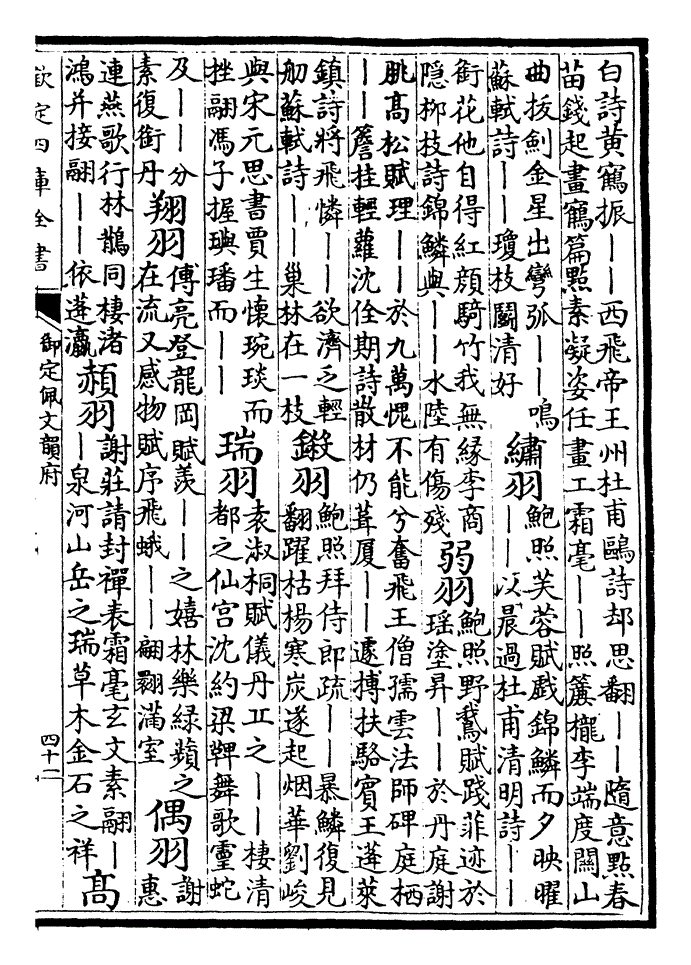 白詩黄鶴振丨丨西飛帝王州杜甫鷗詩却思翻丨丨隨意點春
苗錢起畫鶴篇點素凝姿任畫工霜毫丨丨照簾櫳李端度關山
曲拔劍金星出彎弧丨丨鳴
蘇軾詩丨丨瓊枝鬬清好
繡羽
鮑照芙蓉賦戲錦鱗而夕映曜
丨丨以晨過杜甫清明詩丨丨
銜花他自得紅顔騎竹我無縁李商
隱柳枝詩錦鱗與丨丨水陸有傷殘
弱羽
鮑照野鵞賦踐菲迹於
瑶塗昇丨丨於丹庭謝
朓高松賦理丨丨於九萬愧不能兮奮飛王僧孺雲法師碑庭栖
丨丨簷挂輕蘿沈佺期詩散材仍葺厦丨丨遽摶扶駱賓王蓬萊
鎮詩將飛憐丨丨欲濟乏輕
舠蘇軾詩丨丨巢林在一枝
鎩羽
鮑照拜侍郎疏丨丨暴鱗復見
翻躍枯楊寒炭遂起烟華劉峻
與宋元思書賈生懷琬琰而
挫翮馮子握璵璠而丨丨
瑞羽
袁淑桐賦儀丹丘之丨丨棲清
都之仙宫沈約梁鞞舞歌靈蛇
及丨丨分
素復銜丹
翔羽
傅亮登龍岡賦羡丨丨之嬉林樂緑蘋之
在流又感物賦序飛蛾丨丨翩翾滿室
偶羽
謝
惠
連燕歌行林鵲同棲渚
鴻并接翮丨丨依蓬瀛
頳羽
謝莊請封禪表霜毫玄文素翮丨
丨泉河山岳之瑞草木金石之祥
高
欽定四庫全書
御定佩文韻府
四十二